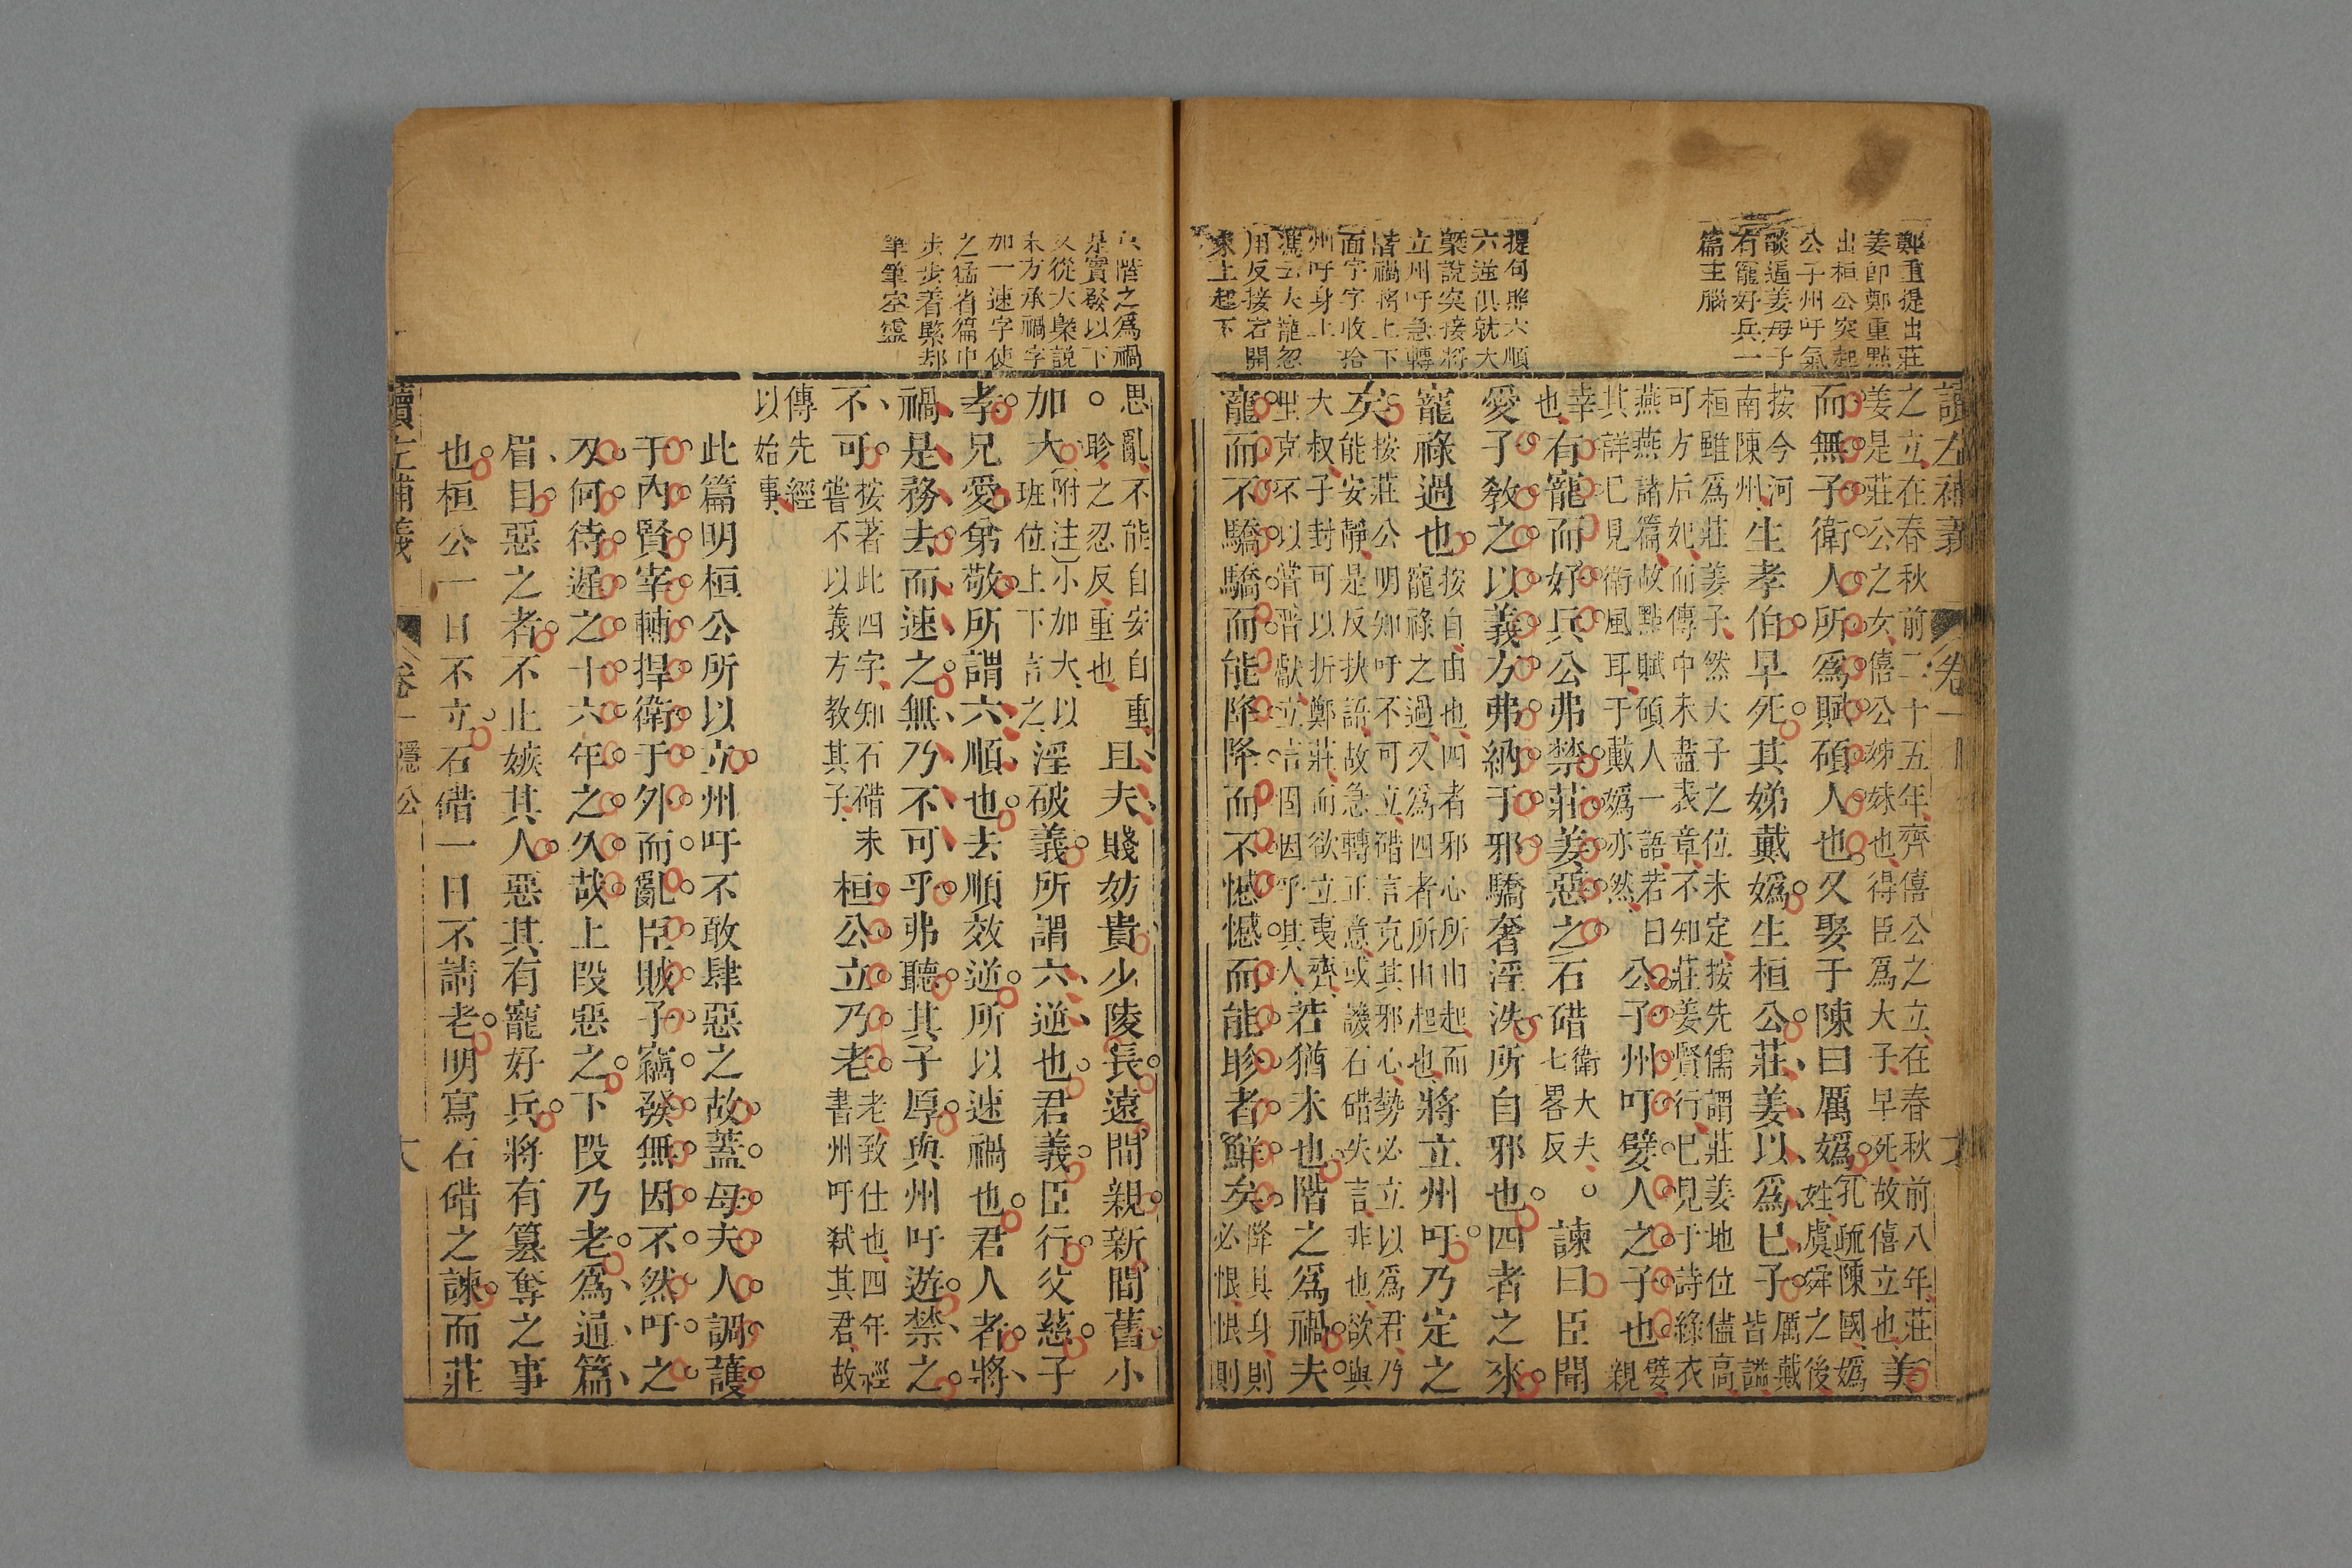 讀左補義
卷一
鄭重提出莊
姜卽鄭重點
出桓公突起
公子州吁氣
燄逼姜母子
有寵好兵一
篇主腦
提句照六順
六逆俱就大
槩說突接將
立州吁急轉
階禍將上下
面字字收拾
州吁身上
用反接宕開
來上起下
之立在春秋前二十五年齊僖公之立在春秋前八年莊
姜是莊公之女僖公姊妹也得臣爲大子早死故僖立也
美
而無子衛人所爲賦碩人也又娶于陳曰厲嬀
孔疏陳國嬀
姓虞舜之後
厲戴
皆諡
按今河
南陳州
生孝伯早死其娣戴嬀生桓公莊姜以爲己子
桓雖爲莊姜子然大子之位未定按先儒謂莊姜地位儘高
可方后妃而傳中未盡表章不知莊姜賢行已見于詩綠衣
燕燕諸篇故點賦碩人一語若曰
其詳已見衛風耳于戴嬀亦然
公子州吁嬖人之子也
嬖
親
幸
也
有寵而好兵公弗禁莊姜惡之石碏
衛大夫
七畧反
諫曰臣聞
愛子教之以義方弗納于邪驕奢淫泆所自邪也四者之來
寵祿過也
按自由也四者邪心所由起而
寵祿之過又爲四者所由起也
將立州吁乃定之
矣
按莊公明知吁不可立碏言克其邪心勢必立以爲君乃
能安靜是反抉語故急轉正意或譏石碏失言非也欲與
大叔子封可以折鄭莊而欲立夷齊
里克不以嘗晉獻立言固因乎其人
若猶未也階之爲禍夫
寵而不驕驕而能降降而不憾憾而能眕者鮮矣
降其身則
必恨恨則
階之爲禍
是實發以下
又從大槩説
末方承禍字
加一速字使
之猛省篇中
步步着緊却
筆筆空靈
思亂不能自安自重
眕之忍反重也
且夫賤妨貴少陵長遠間親新間舊小
加大
附注小加大以
班位上下言之
淫破義所謂六逆也君義臣行父慈子
孝兄愛弟敬所謂六順也去順效逆所以速禍也君人者將
禍是務去而速之無乃不可乎弗聽其子厚與州吁遊禁之
不可
按著此四字知石碏未
嘗不以義方教其子
桓公立乃老
老致仕也四年經
書州吁弒其君故
傳先經
以始事
此篇明桓公所以立州吁不敢肆惡之故蓋母夫人調護
于內賢宰輔捍衛于外而亂臣賊子竊發無因不然吁之
及何待遲之十六年之久哉上段惡之下段乃老爲通篇
眉目惡之者不止嫉其人惡其有寵好兵將有簒奪之事
也桓公一日不立石碏一日不請老明寫石碏之諫而莊
讀左補義
卷一 隱公